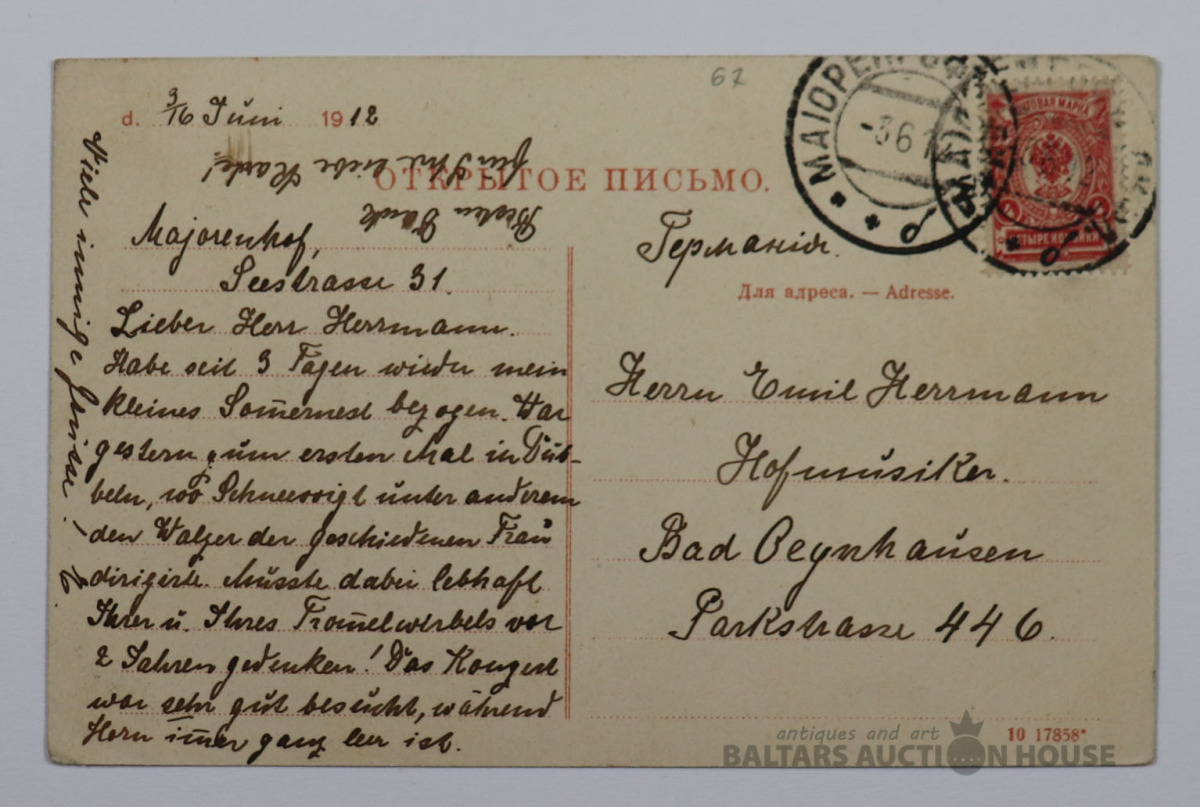 67
d. 3/16 Juni 1912
ОТКРЫТОЕ ПИСЬМО.
Besten Dank
für Ihre liebe Karte!
Majorenhof,
Seestrasse 31.
Lieber Herr Herrmann.
Habe seit 3 Tagen wieder mein
kleines Som̅ernest bezogen. War
gestern zum ersten Mal in Dub-
beln, wo Schneevoigt unter anderem
den Walzer der geschiedenen Frau
dirigirte. Musste dabei lebhaft
Ihrer u. Ihres Trom̅elwirbels vor
2 Jahren gedenken! Das Konzert
war sehr gut besucht, während
Horn im̅er ganz leer ist.
Viele innige Grüsse!
МАІОРЕНГОФ
-3 6 1
ПОЧТОВАЯ МАРКА
ЧЕТЫРЕ КОПѢЙКИ
Германія.
Для адреса. — Adresse.
Herrn Emil Herrmann
Hofmusiker.
Bad Oeynhausen
Parkstrasse 446.
10 17858*
antiques and art
BALTARS AUCTION HOUSE